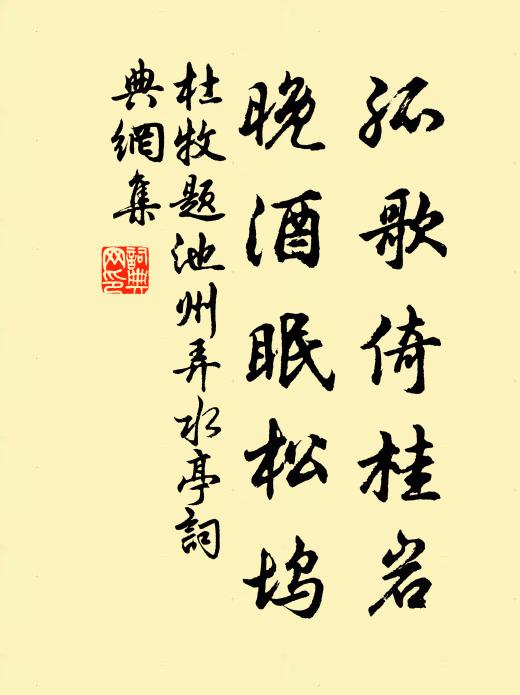 孤歌倚桂岩
晚酒眠松坞
杜牧题池州弄水亭詞
典網集
詞典
网印